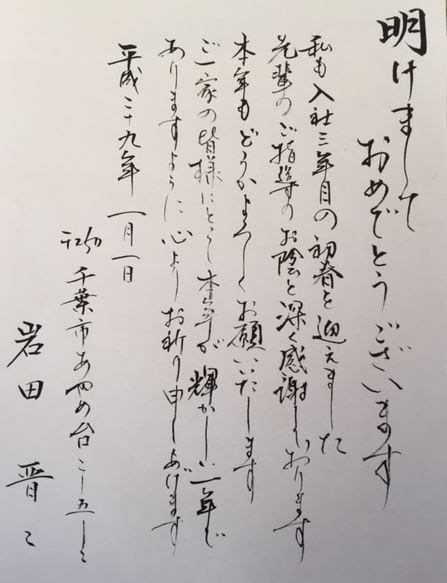 明けまして
おめでとうございます
私も入社三年目の初春を迎えました
先輩のご指導のお陰と深く感謝しております
本年もどうかよろしくお願いいたします
ご一家の皆様にとって本年が輝かしい一年で
ありますように心よりお祈り申しあげます
平成二十九年 一月一日
千葉市あやめ台二ー五ー二
岩田 晋二